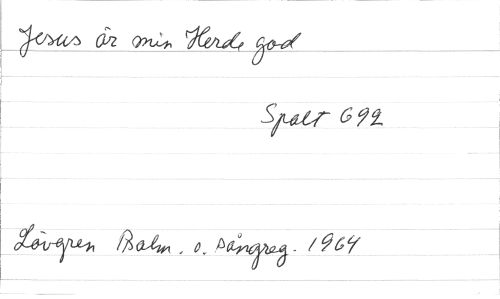 Jesus är min Herde god
Spalt 692
Lövgren Psalm. o. sångreg. 1964